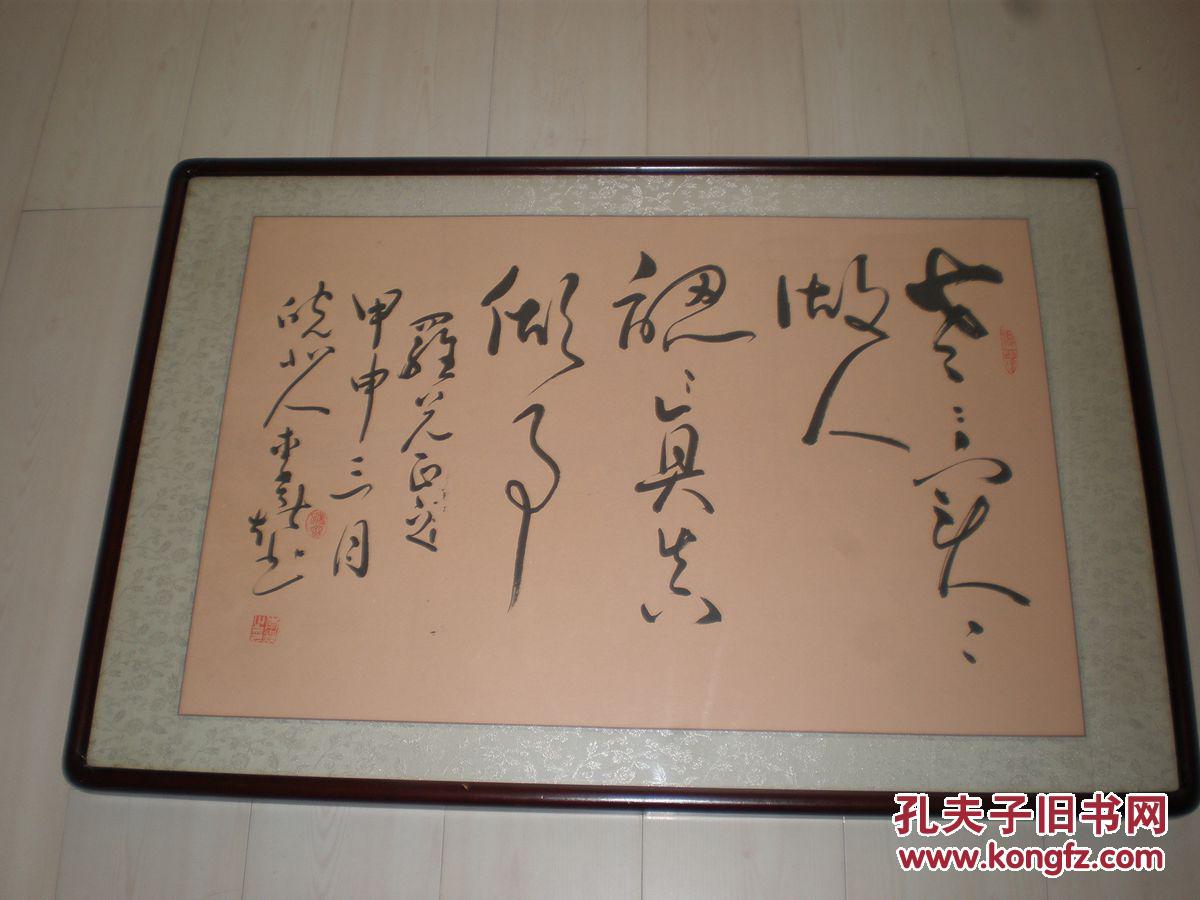 老老實實
做人
認認真真
做事
羅兄正之
甲申三月
皖北人
孔夫子旧书网
www.kongfz.com